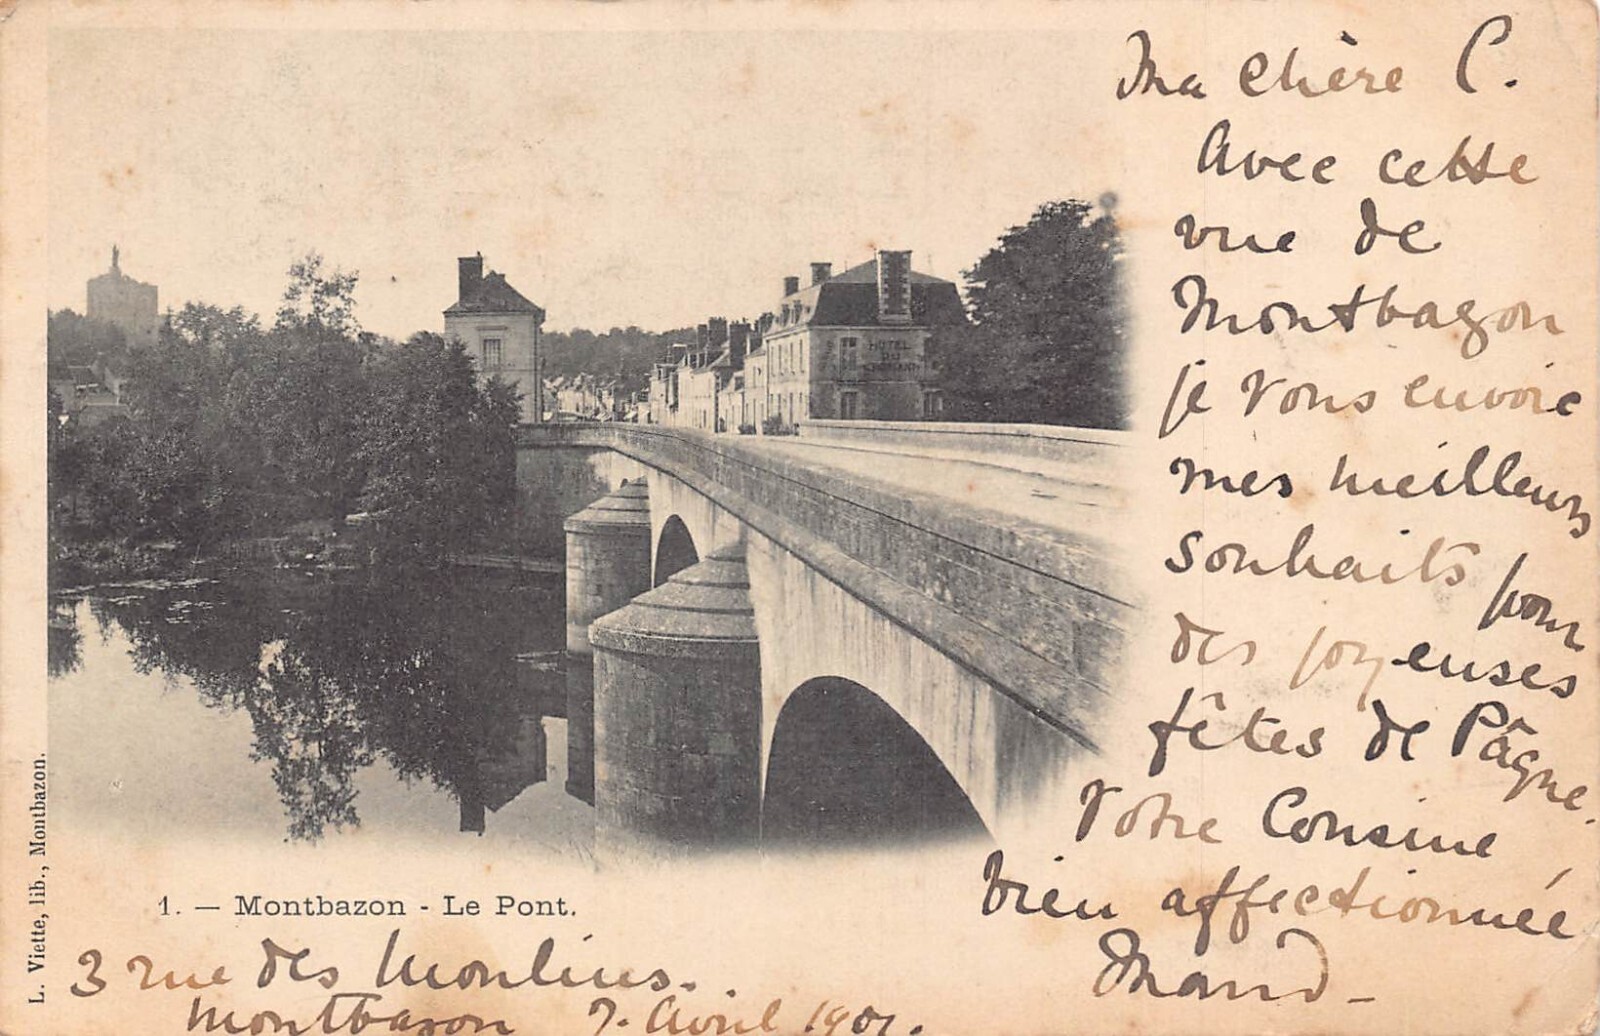 Ma chère C.
Avec cette
vue de
Montbazon
je vous envoie
mes meilleurs
souhaits pour
des joyeuses
fêtes de Pâque.
Votre Cousine
bien affectionnée
Maud-
HOTEL
DU
1. — Montbazon - Le Pont.
L. Viette, lib., Montbazon.
3 rue des Moulins.
Montbazon 7. Avril 1901.